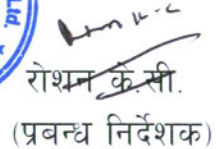 Ltd.
रोशन के.सी.
(प्रबन्ध निर्देशक)